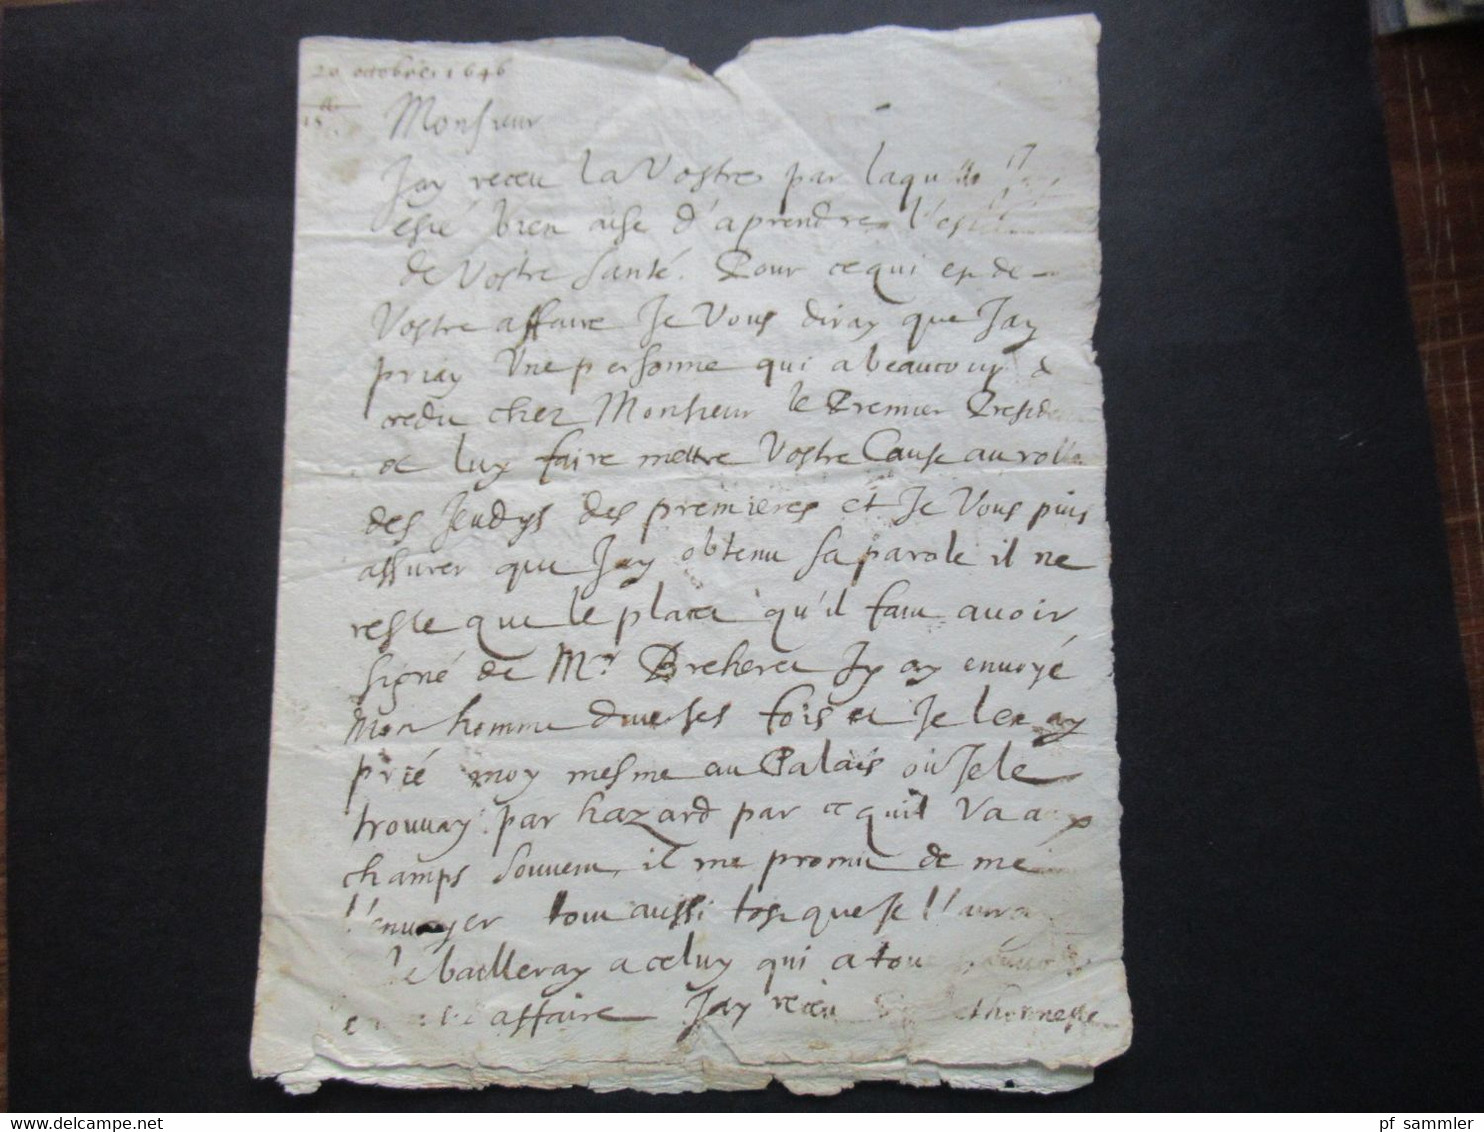 20 octobre 1646
Monsieur
Jay receu la Vostre par laqu
esté bien aise d'aprendre l'est
de Vostre santé. Pour ce qui est de
Vostre affaire Je Vous diray que Jay
priay Une personne qui a beaucoup de
credit chez Monsieur le Premier Presiden
de luy faire mettre Vostre Cause au rolle
des Jeudys des premieres et Je Vous puis
assurer que Jay obtenu sa parole il ne
reste que le placet qu'il faut avoir
signé de Mr. Breheret Jy ay envoyé
Mon homme diverses fois et Je len ay
prié moy mesme au Palais où Je le
trouvay par hazard par ce quil Va aux
champs souvent, il me promit de me
l'envoyer tout aussi tost que Je l'auray
le bailleray a celuy qui a tout
affaire Jay receu
pf_sammler